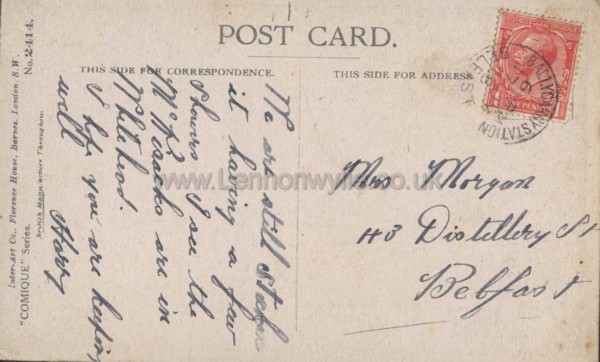 POST CARD.
THIS SIDE FOR CORRESPONDENCE.
THIS SIDE FOR ADDRESS
We are still
it having a few
Showers I see the
are in
Whitehead.
I hope you are keeping
well
Harry
Mrs Morgan
43 Distillery St
Belfast
Inter-Art Co., Florence House, Barnes, London S.W.
"COMIQUE" Series.
No. 2414.
British Manufacture Throughout.
ONE PENNY
STATION
BELFAST
www.Lennonwylie.co.uk